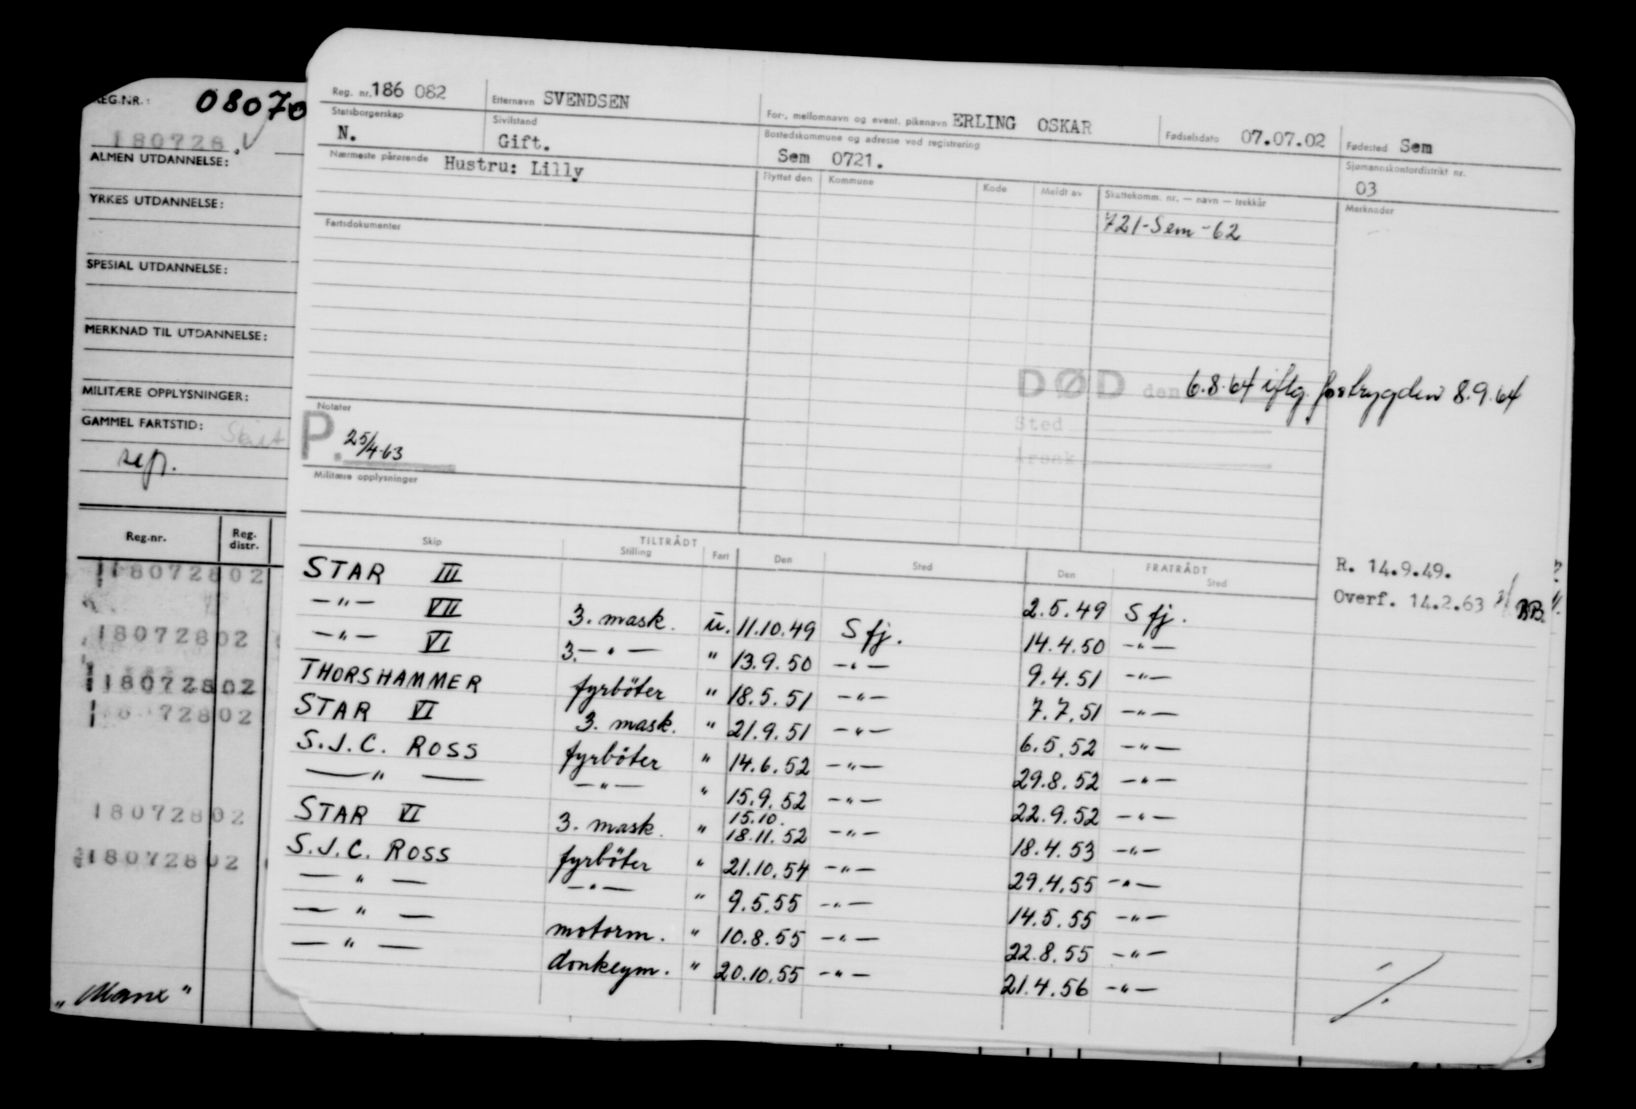 REG.NR.: 08070
180728
ALMEN UTDANNELSE:
YRKES UTDANNELSE:
SPESIAL UTDANNELSE:
MERKNAD TIL UTDANNELSE:
MILITÆRE OPPLYSNINGER:
GAMMEL FARTSTID:
Reg.nr. Reg. distr.
18072802
18072802
18072802
72802
18072802
18072802
"Manx"
Reg. nr. 186 082 Etternavn SVENDSEN For-, mellomnavn og event. pikenavn ERLING OSKAR Fødselsdato 07.07.02 Fødested Sem
Statsborgerskap N. Sivilstand Gift. Bostedskommune og adresse ved registrering Sem 0721. Sjømannskontordistrikt nr. 03
Nærmeste pårørende Hustru: Lilly Flyttet den Kommune Kode Meldt av Skattekomm. nr. — navn — trekkår Merknader
721-Sem-62
Fartsdokumenter
DØD den 6.8.64 iflg. forbrygden 8.9.64
Sted
Årsak
Notater
P. 25/4-63
Militære opplysninger
TILTRÅDT FRATRÅDT
Skip Stilling Fart Den Sted Den Sted
R. 14.9.49.
Overf. 14.2.63
STAR III 2.5.49 Sfj.
—"— VII 3. mask. u. 11.10.49 Sfj. 14.4.50 —"—
—"— VI 3.—"— " 13.9.50 —"— 9.4.51 —"—
THORSHAMMER fyrböter " 18.5.51 —"— 7.7.51 —"—
STAR VI 3. mask. " 21.9.51 —"— 6.5.52 —"—
S.J.C. ROSS fyrböter " 14.6.52 —"— 29.8.52 —"—
—"— —"— " 15.9.52 —"— 22.9.52 —"—
STAR VI 3. mask. " 15.10. 18.11.52 —"— 18.4.53 —"—
S.J.C. ROSS fyrböter " 21.10.54 —"— 29.4.55 —"—
—"— —"— " 9.5.55 —"— 14.5.55 —"—
—"— motorm. " 10.8.55 —"— 22.8.55 —"—
—"— donkeym. " 20.10.55 —"— 21.4.56 —"—